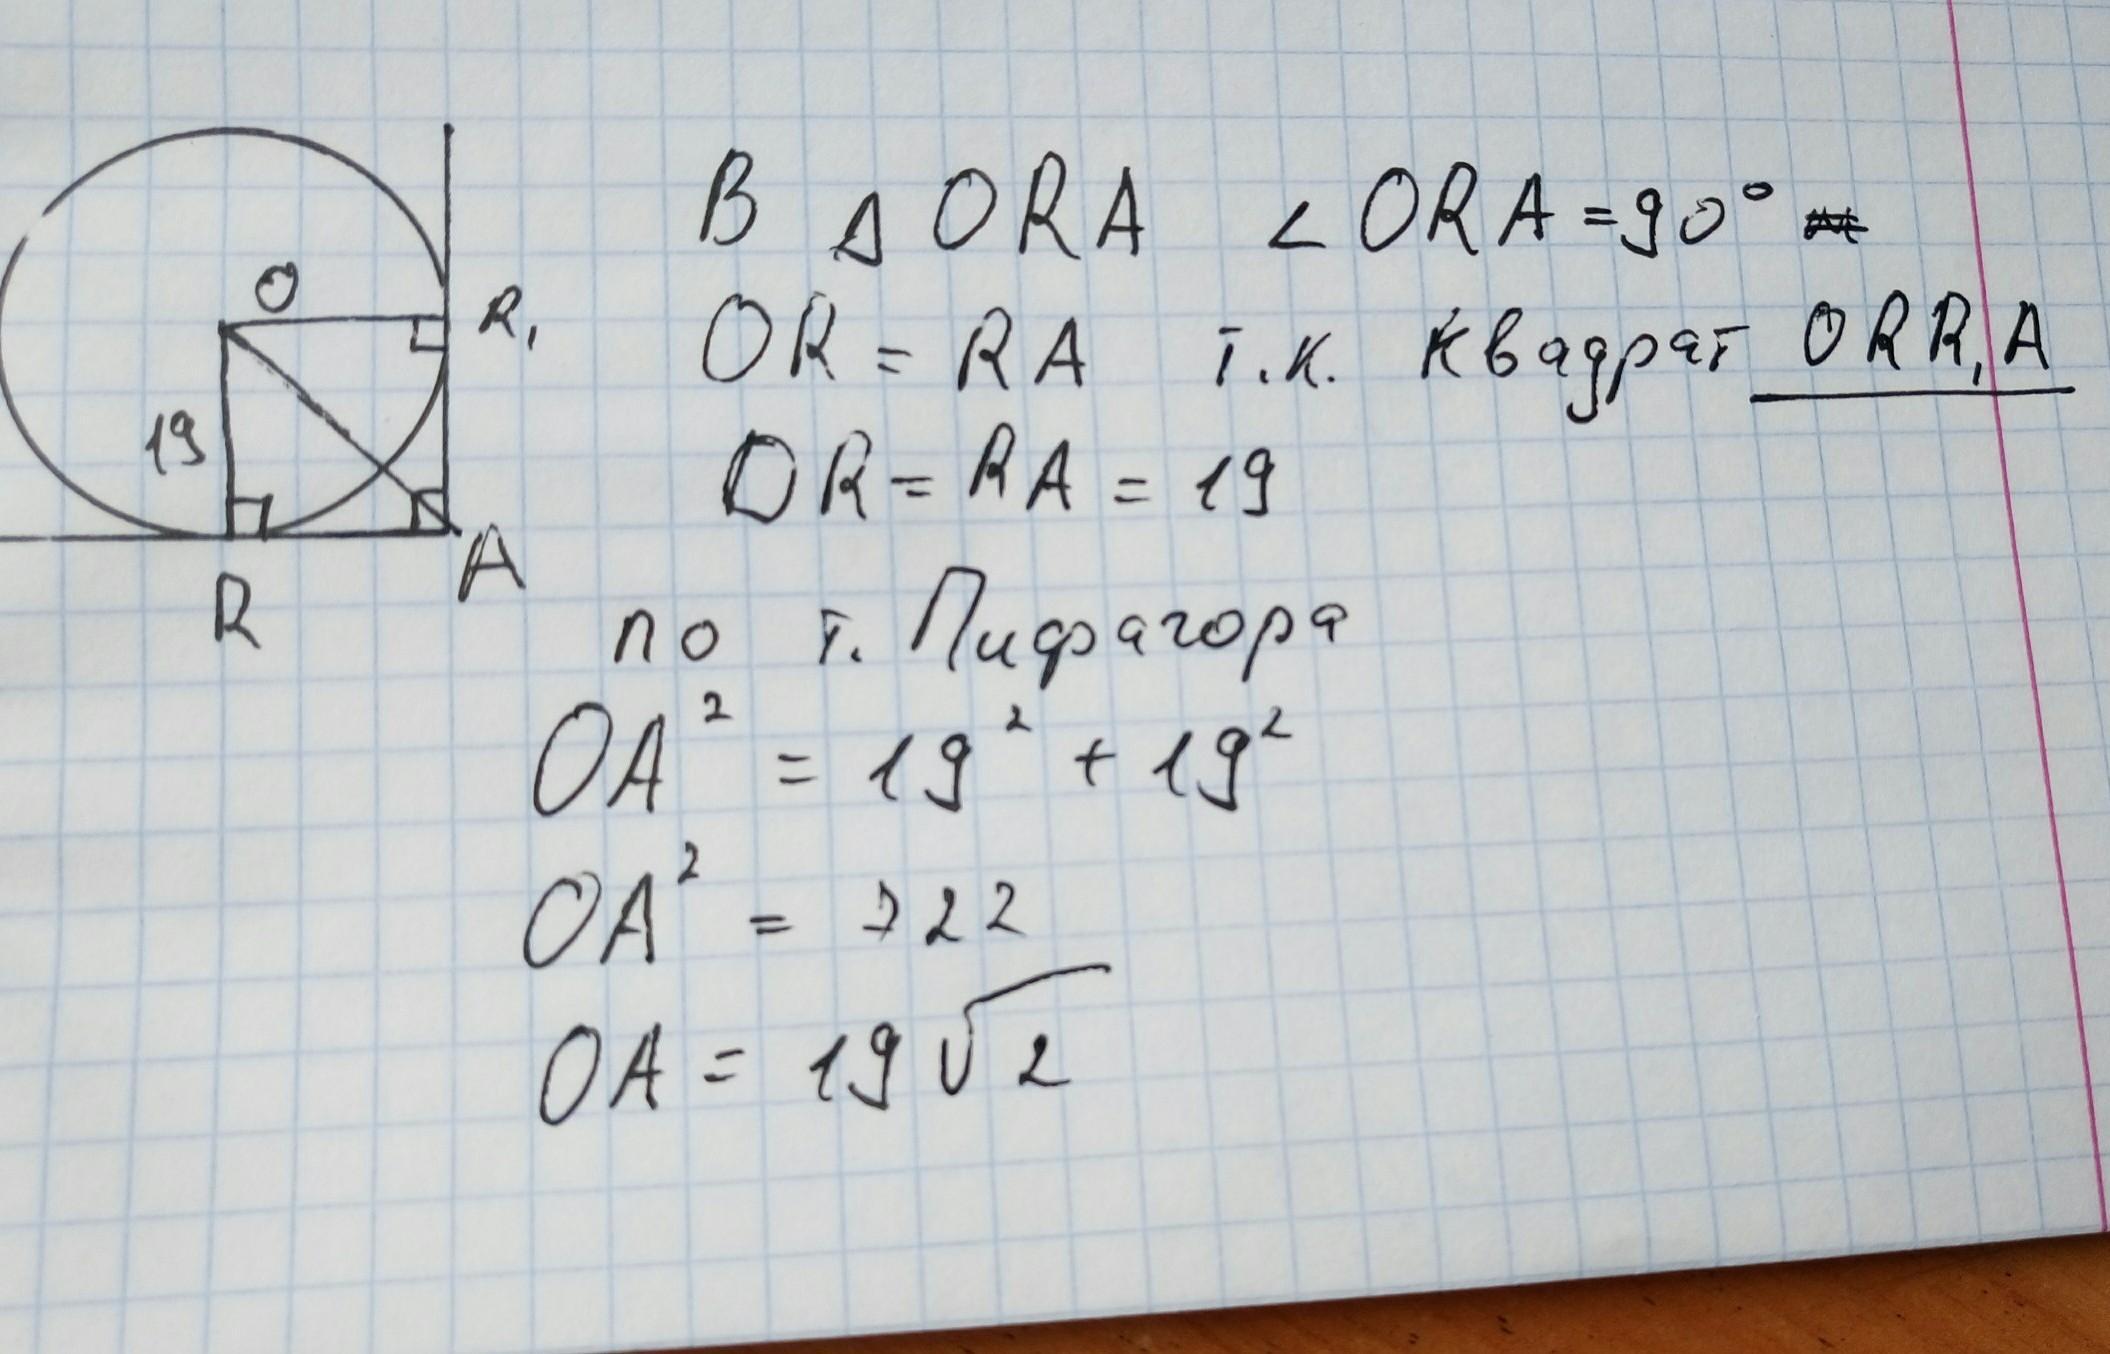 O
R₁
19
R
A
В Δ ORA ∠ ORA = 90°
OR = RA т.к. квадрат ORR₁A
OR = RA = 19
по т. Пифагора
OA² = 19² + 19²
OA² = 722
OA = 19√2